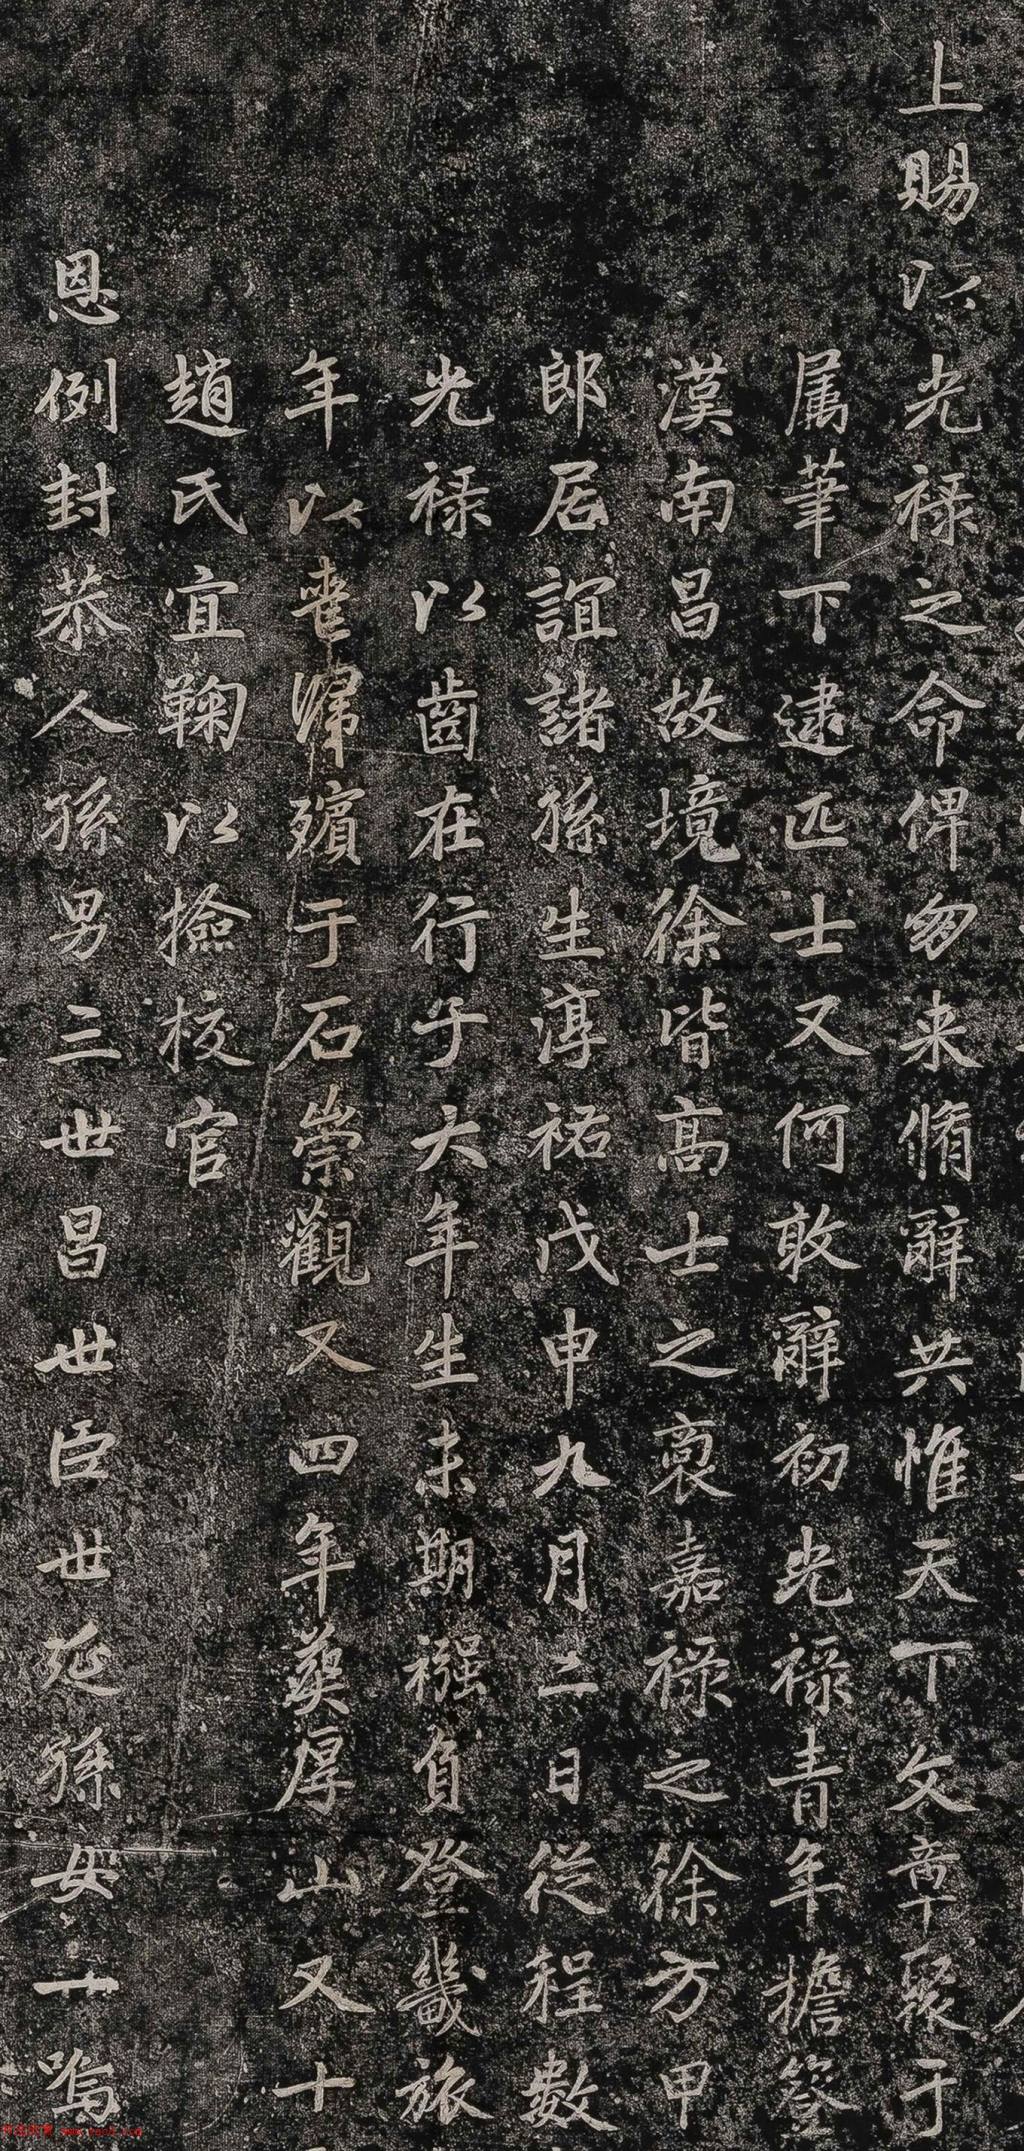 上賜以光禄之命俾匆来脩辭共惟天下文章聚于
属筆下逮匹士又何敢辭初光禄青年擔簦
漢南昌故境徐皆高士之裔嘉禄之徐方甲
郎居誼諸孫生淳祐戊申九月二日從程數
光禄以齒在行于大年生未期襁負登畿旅
年以喪歸殯于石崇觀又四年葬厚山又十
趙氏宜鞠以撿校官
恩例封恭人孫男三世昌世臣世延孫女一嗚